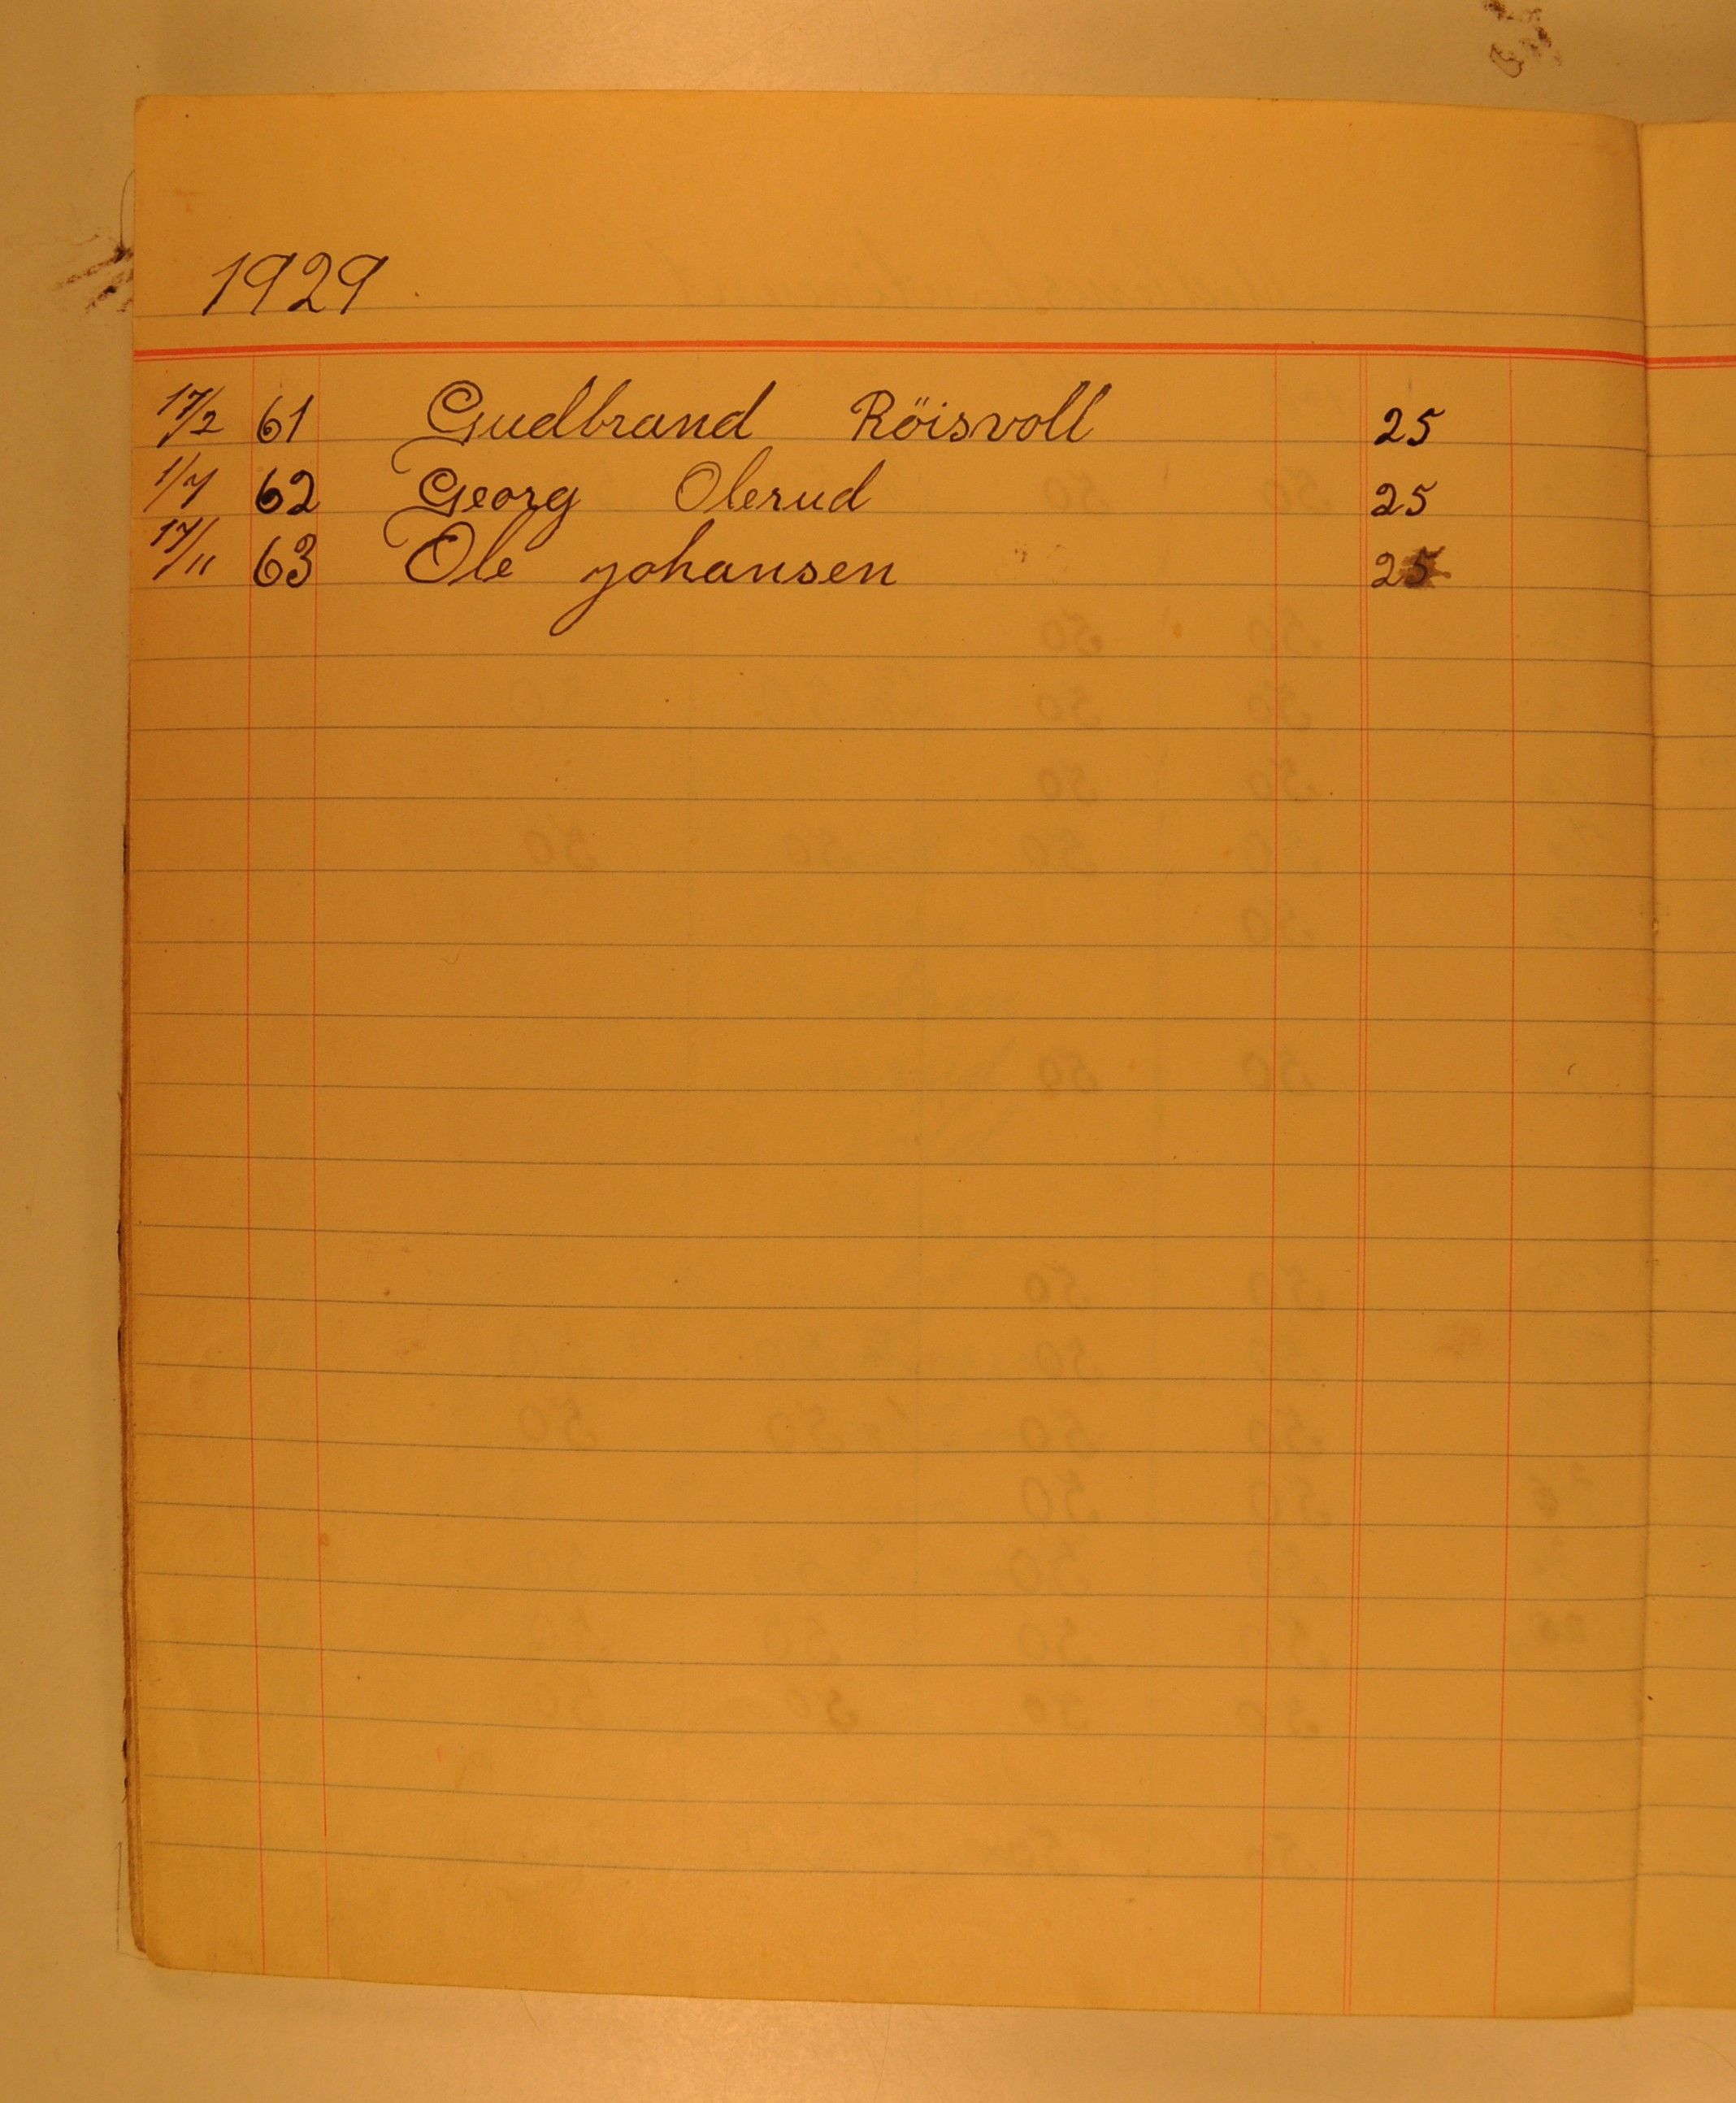 1929
17/2 61 Gudbrand Röisvoll 25
1/7 62 Georg Olerud 25
17/11 63 Ole Johansen 25